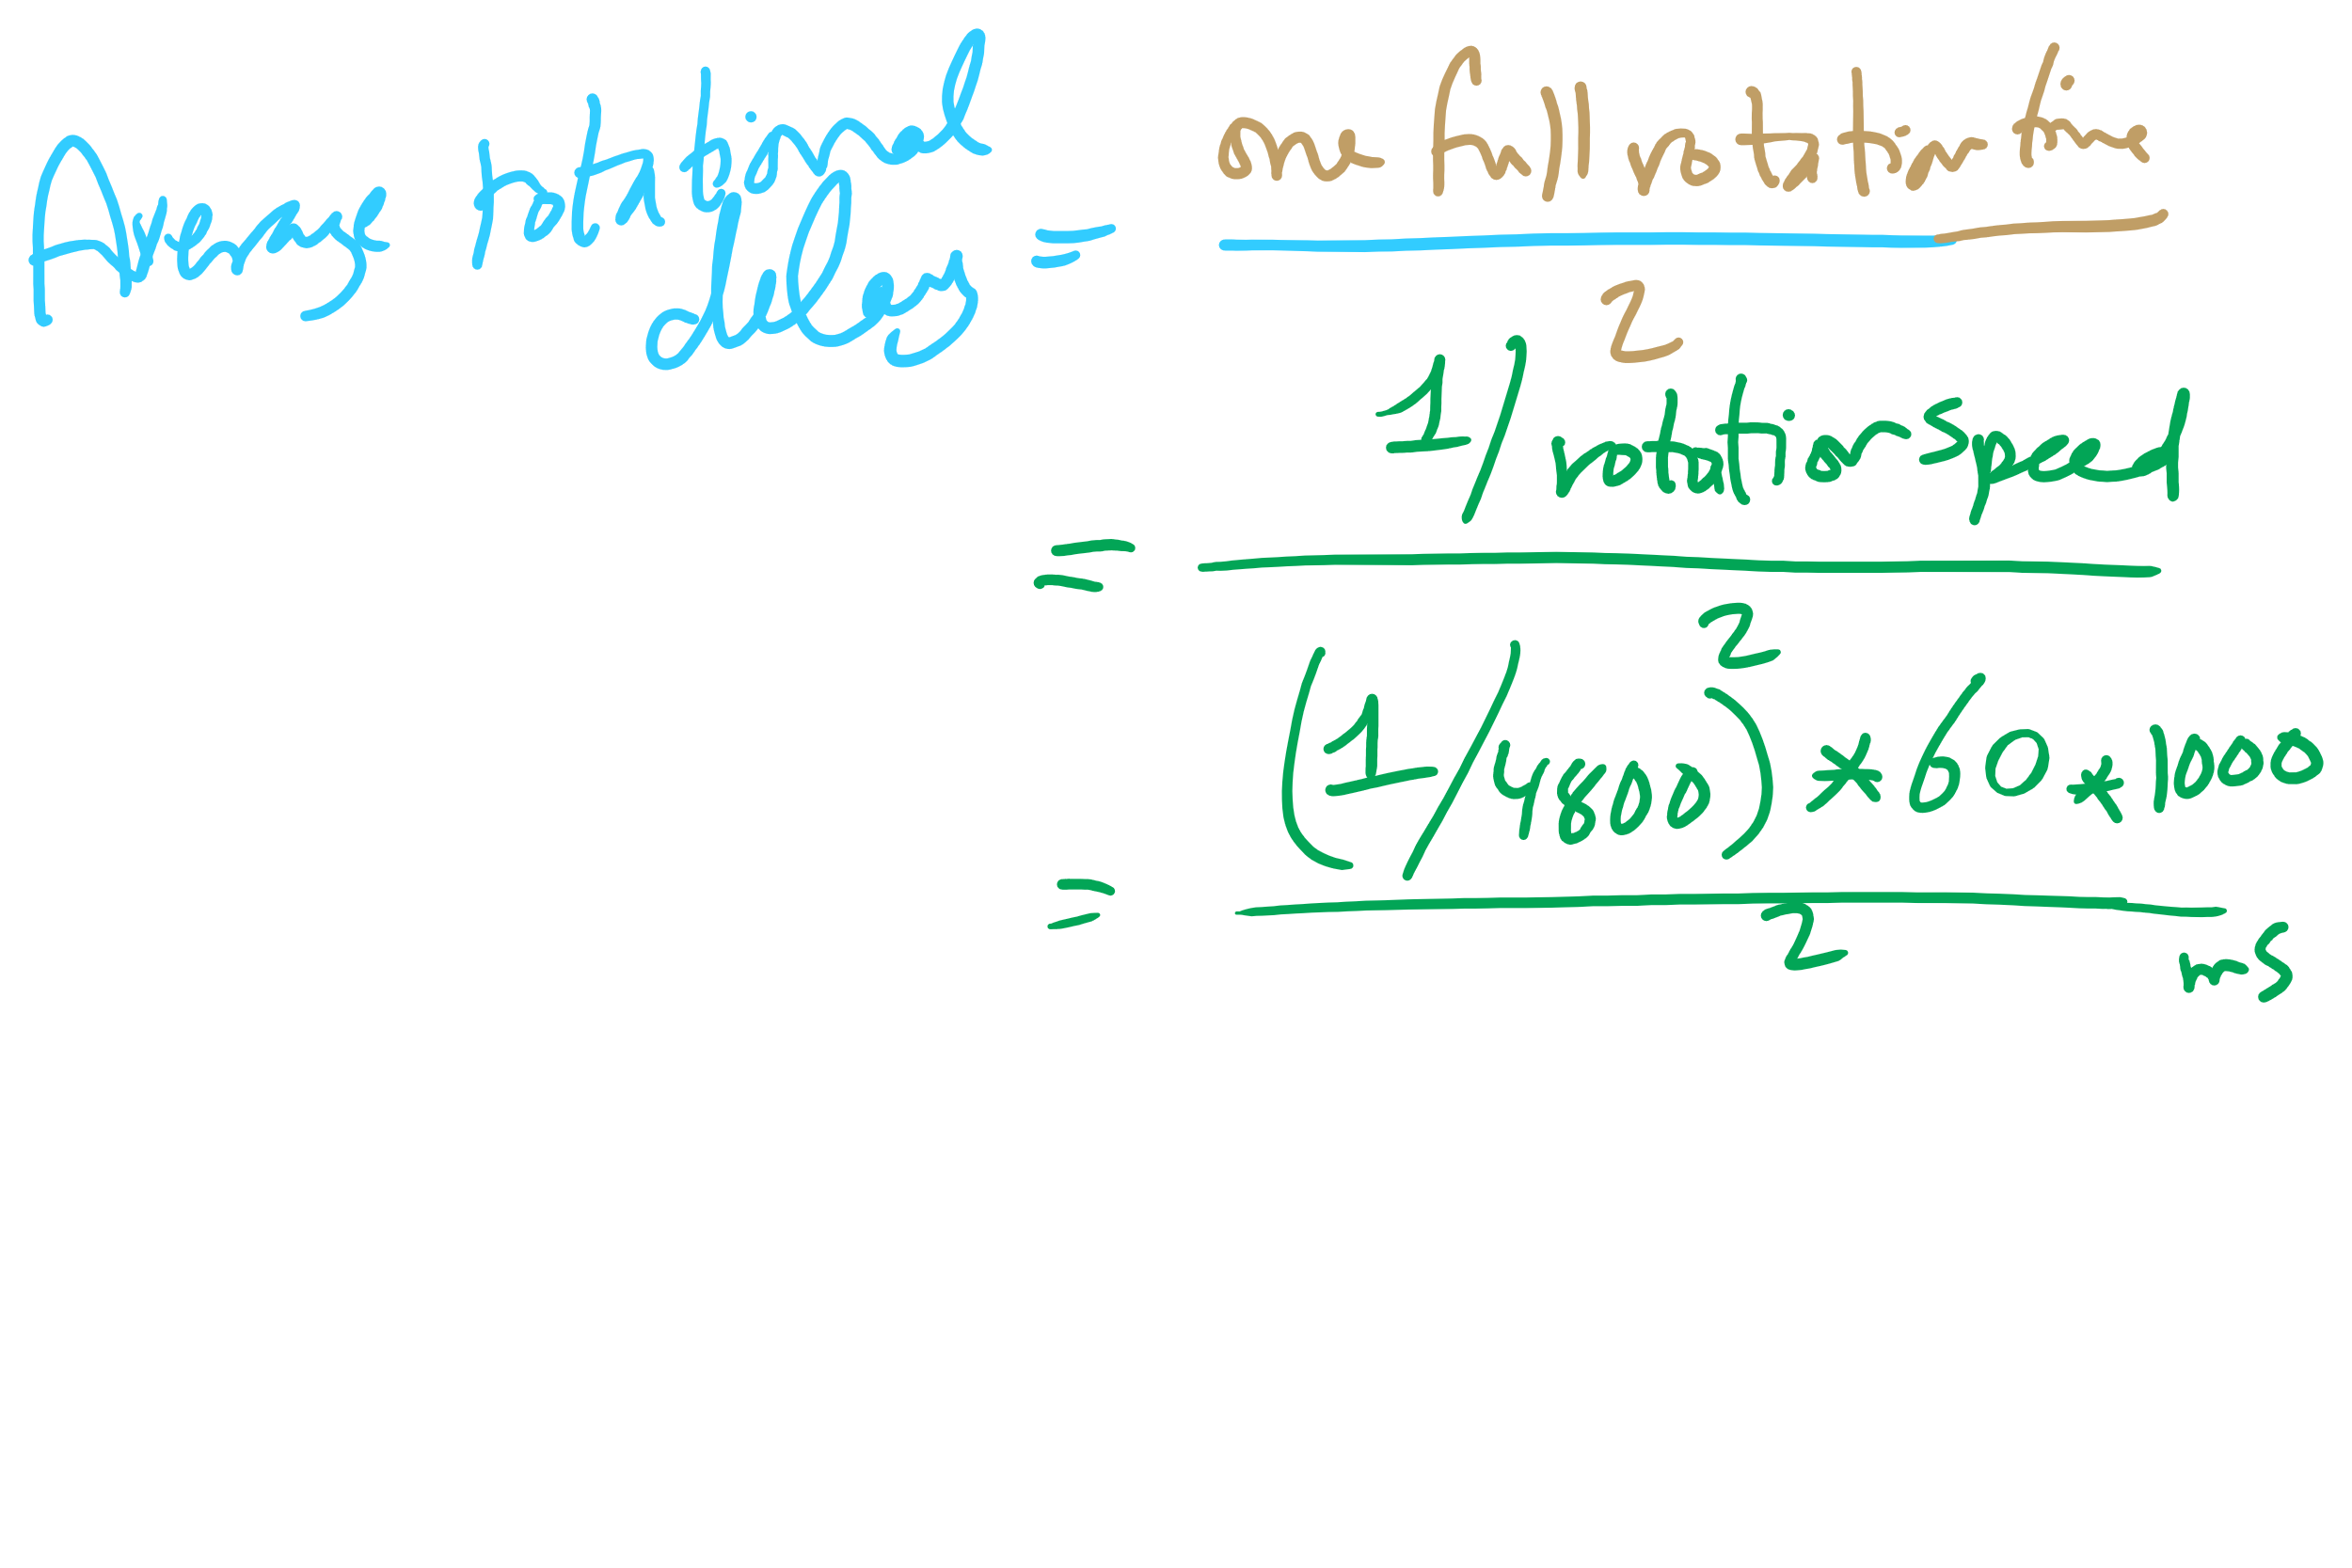 Average rotational delay = one full rotation time
2
= 1/rotation speed
2
= (1/4800) * 60 * 1000
2 ms